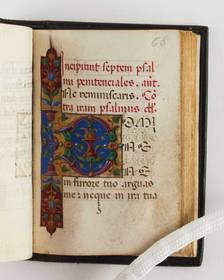 Incipiunt septem psal
mi penitenciales. añt.
Ne reminiscaris. Cõ
tra iram psalmus
DOMI
NE
NE
in furore tuo arguas
me: neque in ira tua